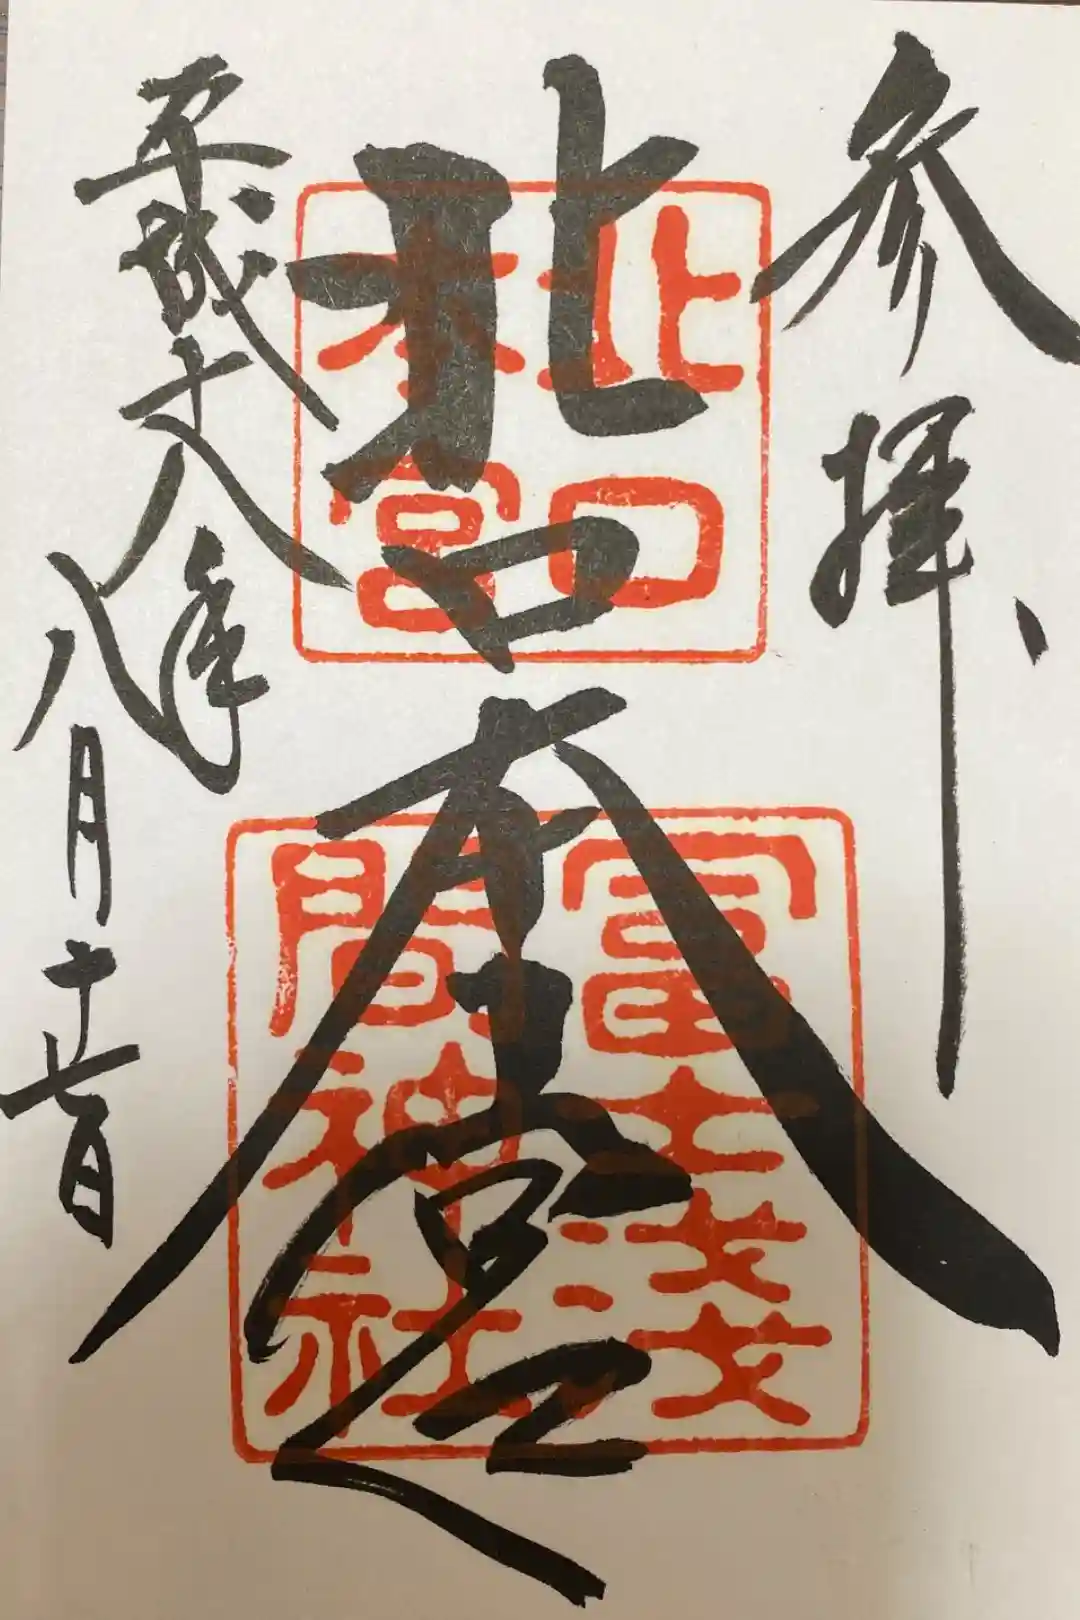 参拝
北口本宮
平成十八年
八月十七日
北口
本宮
冨士浅
間神社